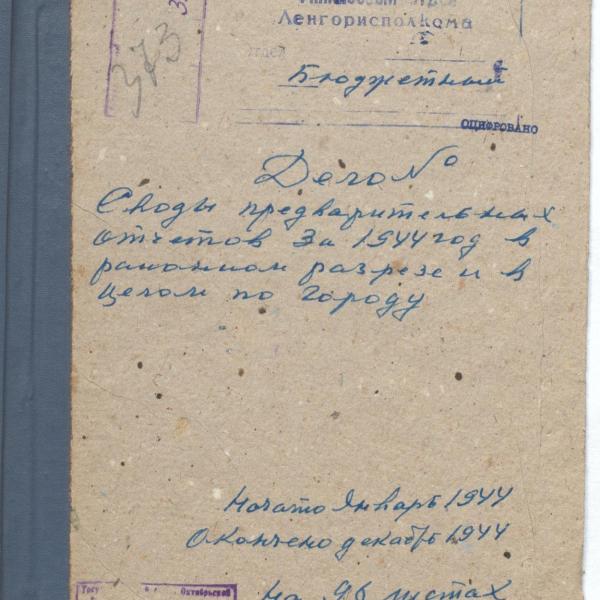 373
Ленгорисполкома
отдел
Бюджетный
ОЦИФРОВАНО
Дело №
Своды предварительных
отчетов за 1944 год в
районном разрезе и в
целом по городу
Начато Январь 1944
Окончено декабрь 1944
на 96 листах
Октябрьской